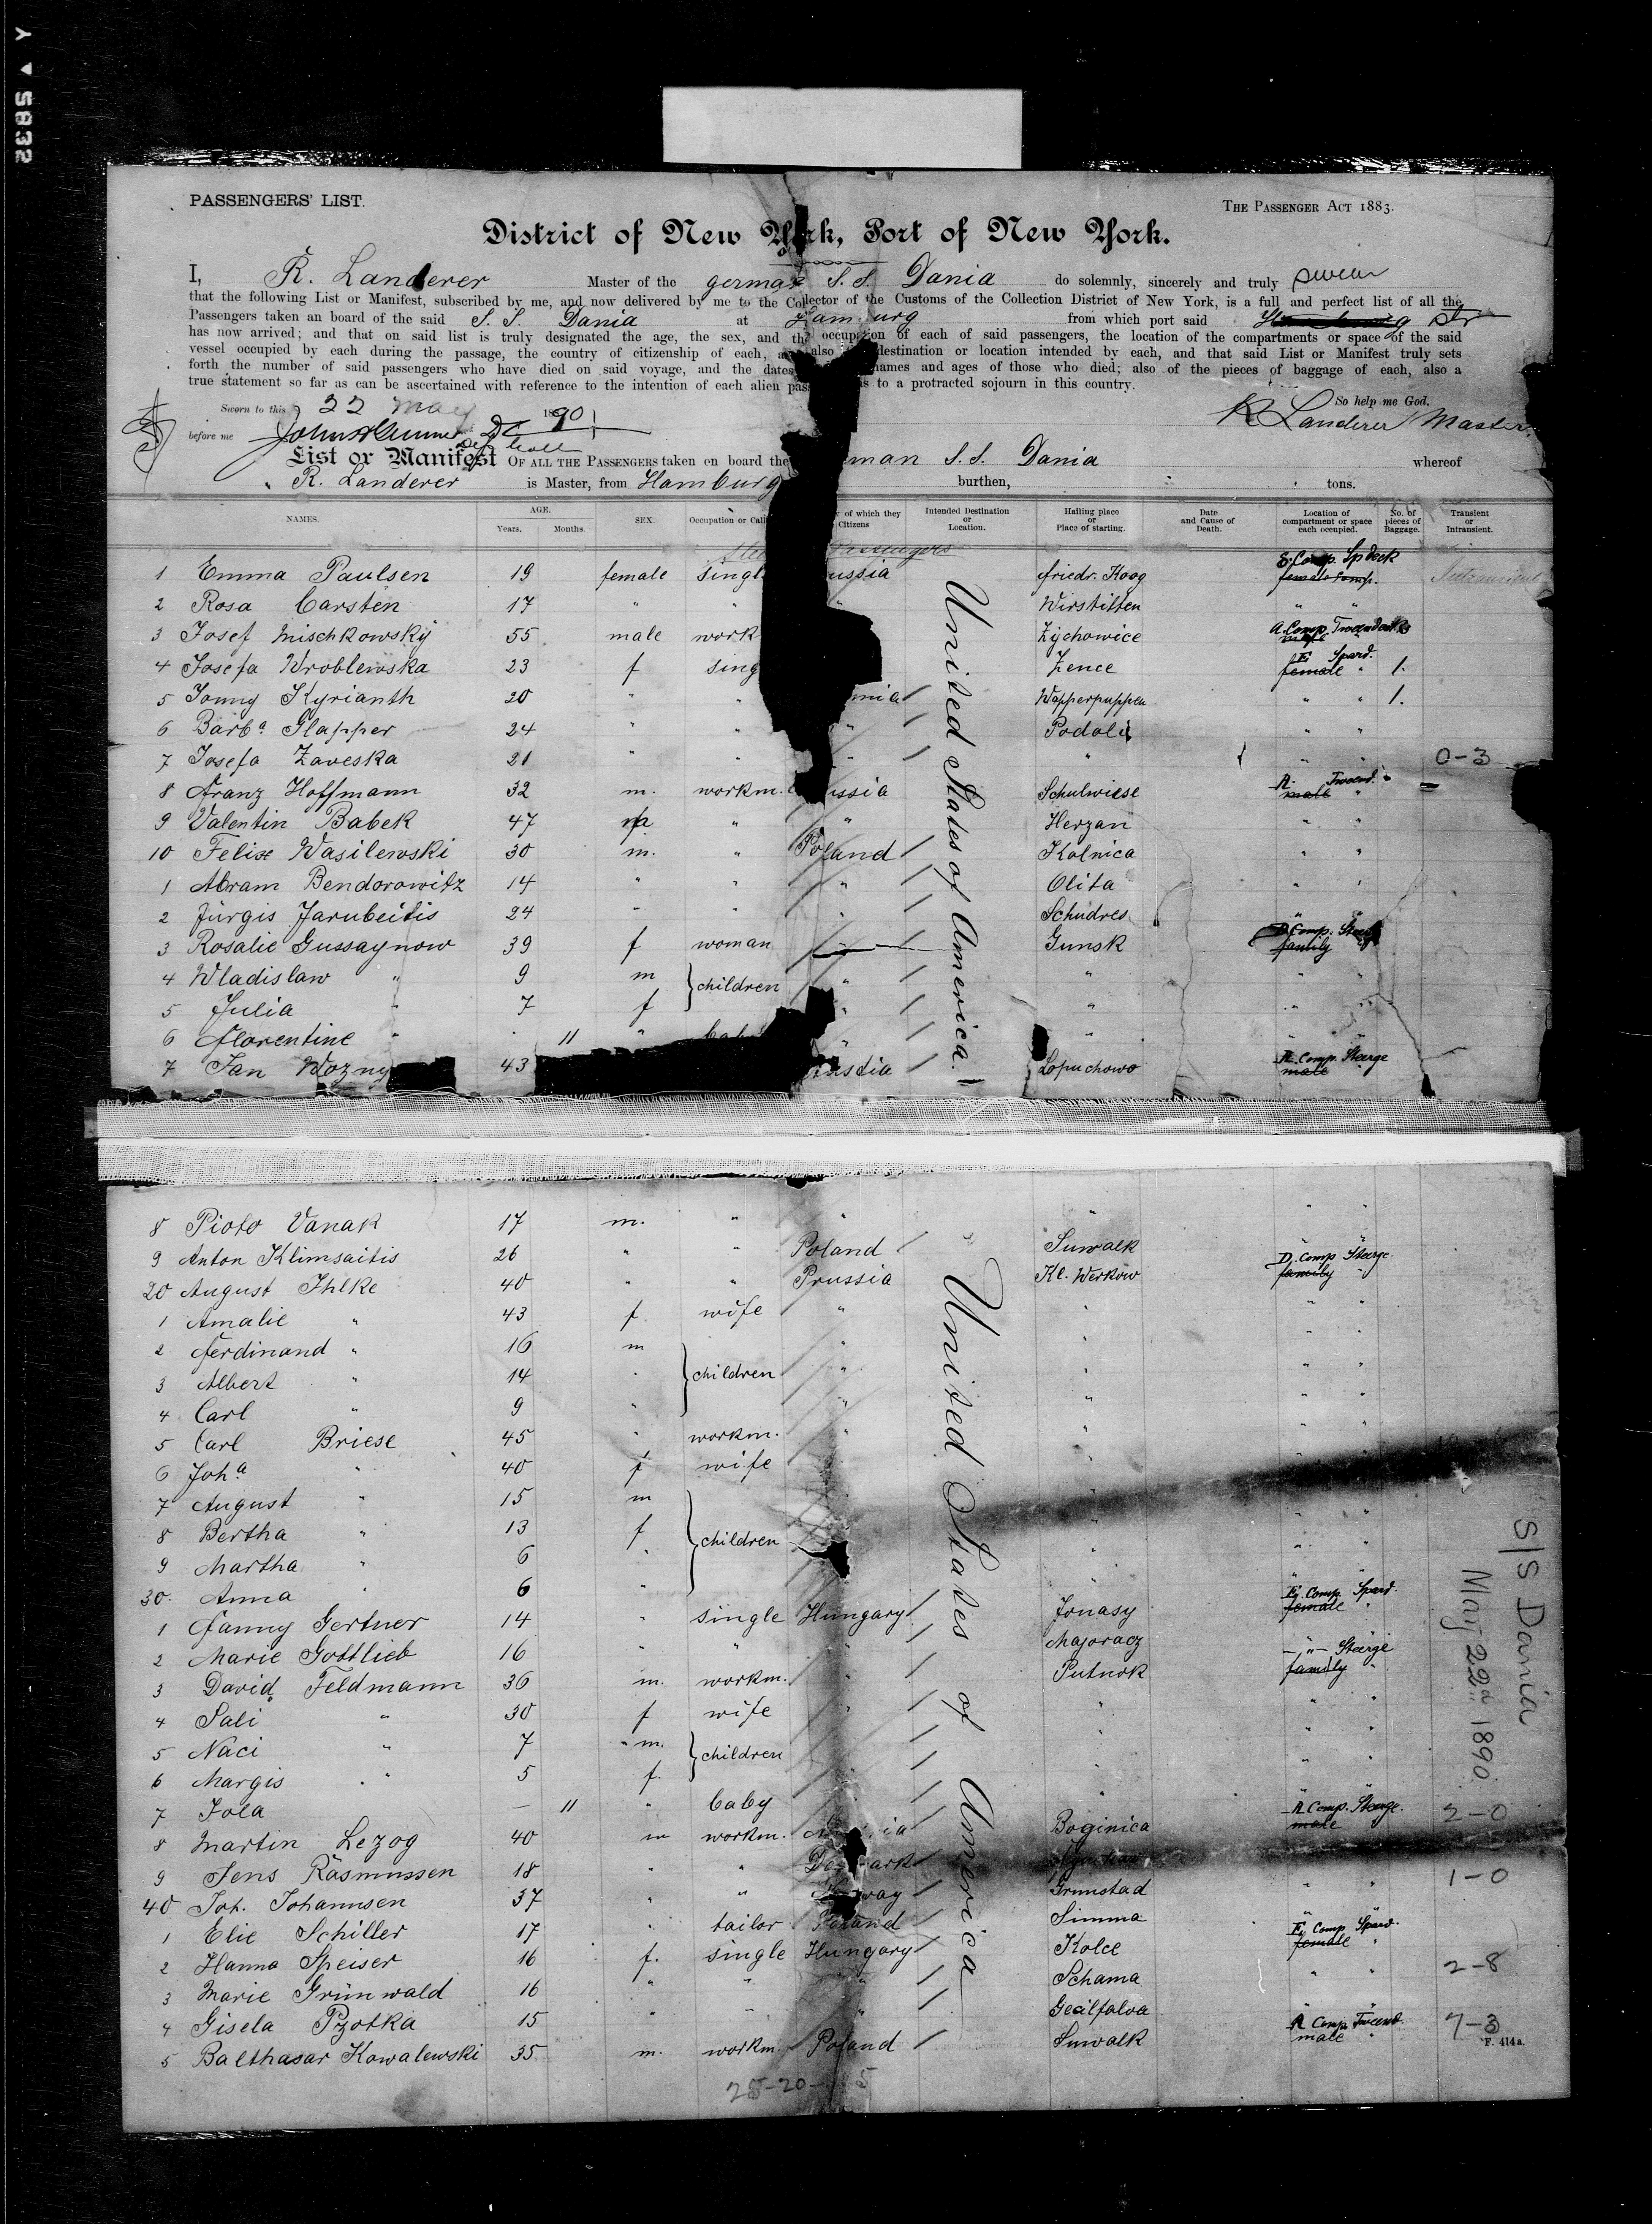 Y ▼ 5832
PASSENGERS' LIST.
THE PASSENGER ACT 1883.
District of New York, Port of New York.
I, R. Landerer Master of the german S.S. Dania do solemnly, sincerely and truly swear
that the following List or Manifest, subscribed by me, and now delivered by me to the Collector of the Customs of the Collection District of New York, is a full and perfect list of all the
Passengers taken on board of the said S. S. Dania at Hamburg from which port said
has now arrived; and that on said list is truly designated the age, the sex, and the occupation of each of said passengers, the location of the compartments or space of the said
vessel occupied by each during the passage, the country of citizenship of each, also destination or location intended by each, and that said List or Manifest truly sets
forth the number of said passengers who have died on said voyage, and the dates names and ages of those who died; also of the pieces of baggage of each, also a
true statement so far as can be ascertained with reference to the intention of each alien to a protracted sojourn in this country.
Sworn to this 22 May 1890
So help me God.
before me
R Landerer Master
List or Manifest OF ALL THE PASSENGERS taken on board the man S. S. Dania whereof
R. Landerer is Master, from Hamburg burthen, tons.
NAMES. AGE. Years. Months. SEX. Occupation or of which they Citizens Intended Destination or Location. Hailing place or Place of starting. Date and Cause of Death. Location of compartment or space each occupied. No. of pieces of Baggage. Transient or Intransient.
Passengers
1 Emma Paulsen 19 female singl ussia friedr. Koog E. Comp. Spdeck female comp.
2 Rosa Carsten 17 " " " Wirstitten " "
3 Josef Mischkowsky 55 male work Zychowice A. Comp. Tweendeck male
4 Josefa Wroblewska 23 f sing Zence E Spard. female " 1.
5 Jonny Kyrianth 20 " " Wapperpuppen " " 1.
6 Barb.a Slapper 24 " " " Podoli " "
7 Josefa Zaveska 21 " " " " " " 0-3
8 Franz Hoffmann 32 m. workm. ussia Schulwiese A. Tweend. male "
9 Valentin Babek 47 m " " Herzan " "
10 Felix Wasilewski 30 m. " Poland Kolnica " "
1 Abram Bendorowitz 14 " " " Olita " "
2 Jürgis Jarubeitis 24 " " " Schudres " "
3 Rosalie Gussaynow 39 f woman Gunsk D Comp. Steerge family
4 Wladislaw " 9 m } children " " " "
5 Julia " 7 f " " "
6 Florentine " 11 " " " "
7 Jan Wozny 43 Lopuchowo A. Comp. Steerge male "
United States of America.
8 Pioto Vanak 17 m. " " " " "
9 Anton Klimsaitis 26 " " Poland Suwalk " "
20 August Ihlke 40 " " Prussia Kl. Werkow D. Comp Steerge. family "
1 Amalie " 43 f wife " " " "
2 Ferdinand " 16 m " " " "
3 Albert " 14 " } children " " " "
4 Carl " 9 " " " " "
5 Carl Briese 45 " workm. " " " "
6 Joh.a " 40 f wife " " "
7 August " 15 m "
8 Bertha " 13 f } children " " "
9 Martha " 6 " " " "
30. Anna " 6 " " "
1 Fanny Gertner 14 " single Hungary Jonasy E. Comp. Spard. female "
2 Marie Gottlieb 16 " " " Majoracz
3 David Feldmann 36 m. workm. " Putnok - " - Steerge family "
4 Sali " 30 f wife " " " "
5 Naci " 7 m. } children " " "
6 Margis " 5 f. " " "
7 Iola — 11 " baby " " "
8 Martin Lezog 40 m workm. Boginica A Comp. Steerge. male " 2-0
9 Jens Rasmussen 18 " " Denmark
40 Joh. Johannsen 37 " " Norway Grimstad " " 1-0
1 Elie Schiller 17 " tailor Poland Simma " "
2 Hanna Speiser 16 f. single Hungary Kolce E. Comp Spard. female "
3 Marie Grünwald 16 " " " Schama " " 2-8
4 Gisela Pzotka 15 " " " Gealfalva " "
5 Balthasar Kowalewski 35 m. workm Poland Suwalk A Comp Tweend. male " 7-3
United States of America
S/S Dania
May 22d 1890
F. 414a.
25-20- 5